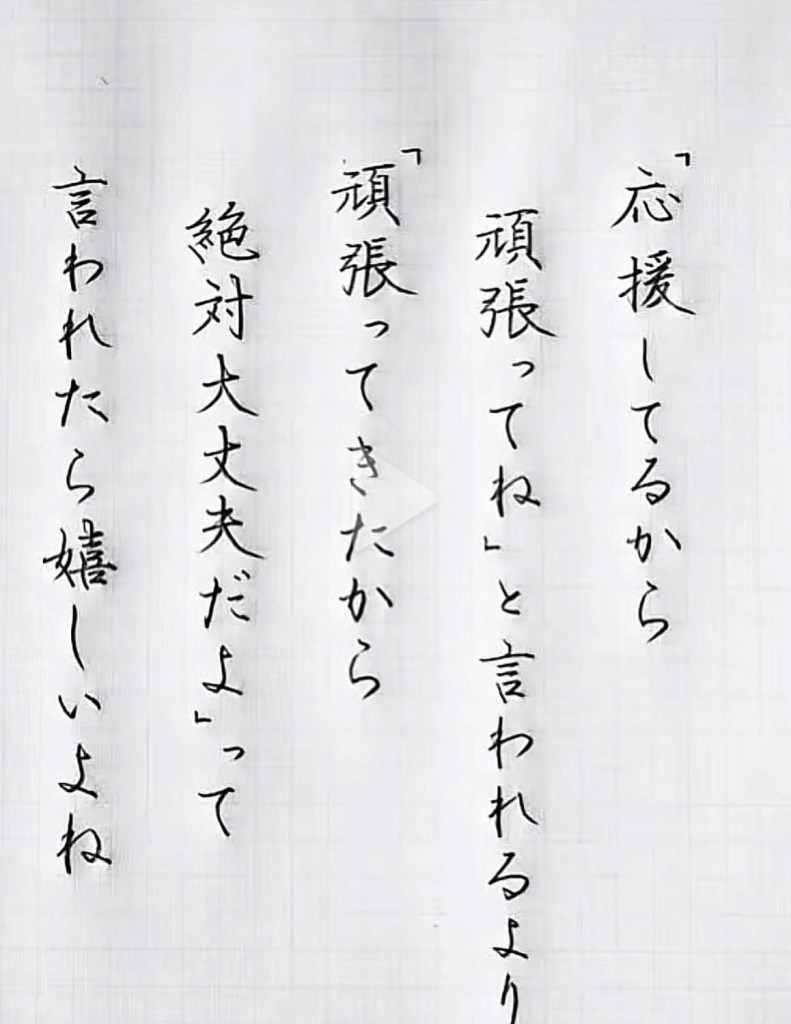 「応援してるから
頑張ってね」と言われるより
「頑張ってきたから
絶対大丈夫だよ」って
言われたら嬉しいよね